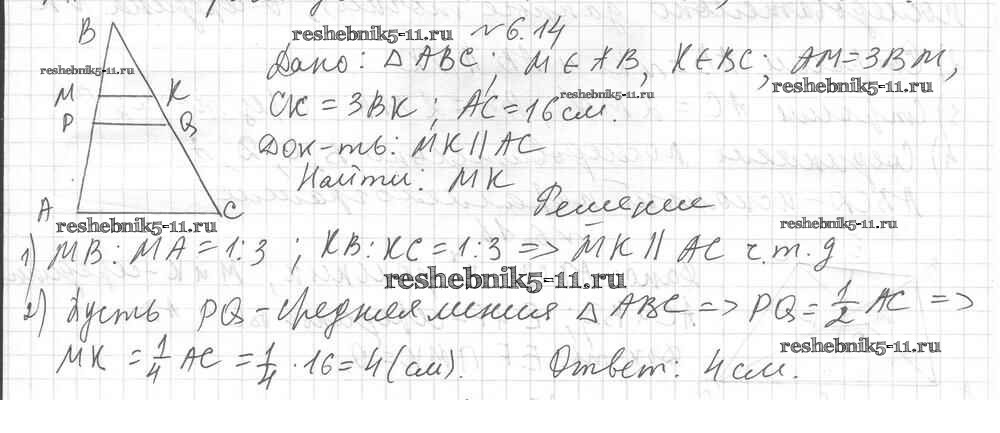 reshebnik5-11.ru №6.14
B
Дано: △ ABC; M ∈ AB, K ∈ BC; AM=3BM,
reshebnik5-11.ru
reshebnik5-11.ru
M K
reshebnik5-11.ru
CK = 3BK; AC=16см.
P Q
Док-ть: MK || AC
Найти: MK
Решение
A C
reshebnik5-11.ru
reshebnik5-11.ru
1) MB : MA = 1:3 ; KB : KC = 1:3 => MK || AC ч.т.д
reshebnik5-11.ru
2) Пусть PQ - средняя линия △ ABC => PQ = 1/2 AC =>
reshebnik5-11.ru
MK = 1/4 AC = 1/4 · 16 = 4 (см). Ответ: 4 см.